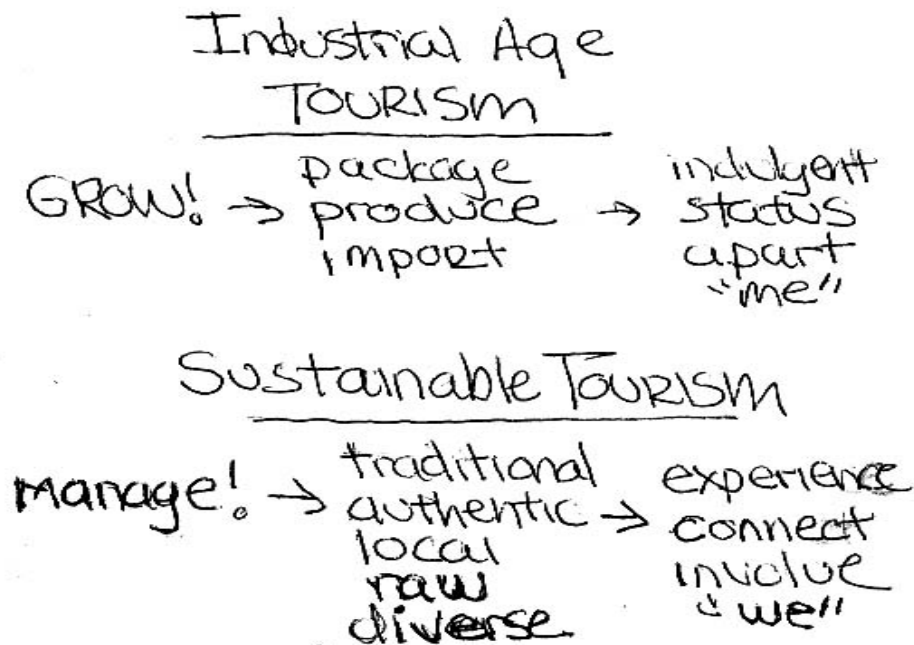 Industrial Age
TOURISM
GROW! → package produce import → indulgent status apart "me"
Sustainable TOURISM
Manage! → traditional authentic local raw diverse → experience connect involve "we"